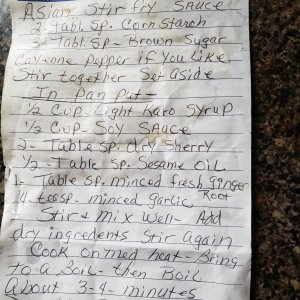 Asian Stir fry SAUCE
2 Table Sp. Corn Starch
3 Tabl Sp - Brown Sugar
Cayenne Pepper if You Like
Stir together Set Aside
In Pan Put -
1/2 Cup Light Karo Syrup
1/2 Cup - Soy SAuce
2 - Table Sp. dry Sherry
1/2 - Table Sp. Sesame Oil
1 - Table Sp. minced fresh ginger Root
1/4 teasp. minced garlic
Stir & Mix Well - Add
dry ingredients Stir Again
Cook on med heat - Bring
to a Boil - then Boil
About 3-4- minutes